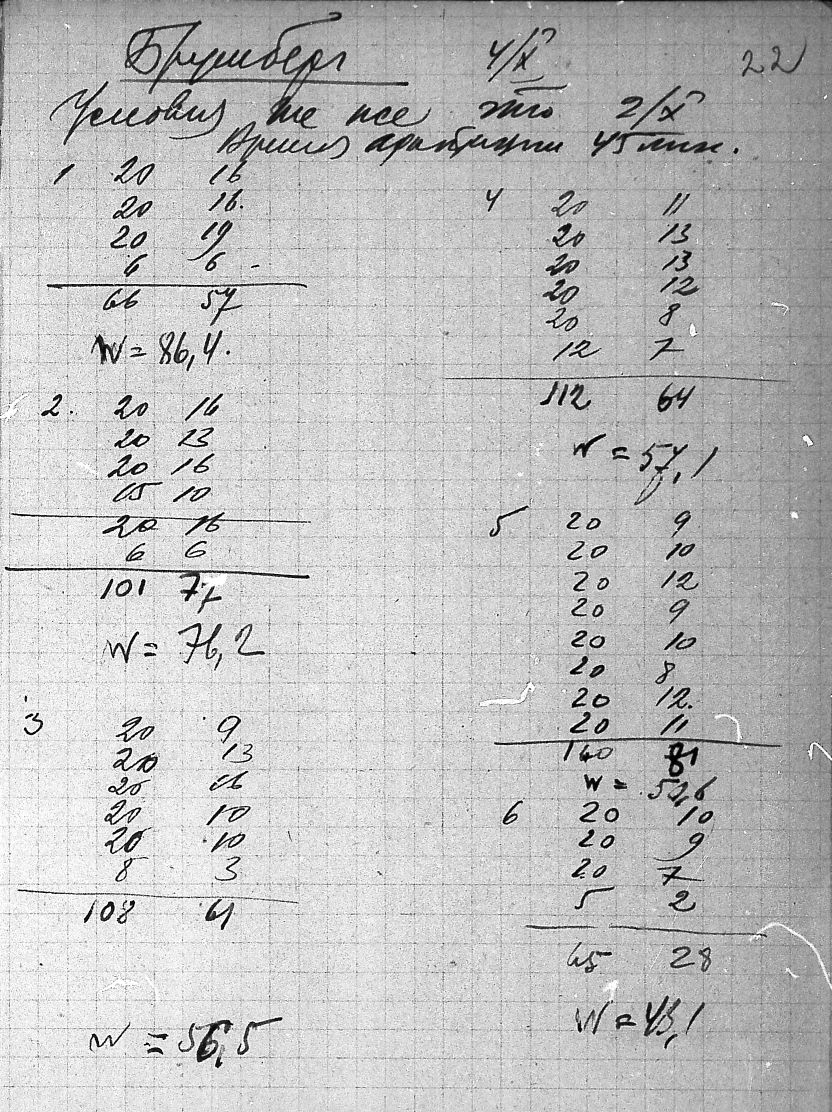 Брумберг 4/X 22
Условия те же что 2/X
Время адаптации 45 мин.
1 20 16
20 16.
20 19
6 6 -
66 57
W = 86,4.
2. 20 16
20 13
20 16
15 10
20 16
6 6
101 77
W = 76,2
3 20 9
20 13
20 16
20 10
20 10
8 3
108 61
W = 56,5
4 20 11
20 13
20 13
20 12
20 8
12 7
112 64
W = 57,1
5 20 9
20 10
20 12
20 9
20 10
20 8
20 12.
20 11
160 81
W = 50,6
6 20 10
20 9
20 7
5 2
65 28
W = 43,1